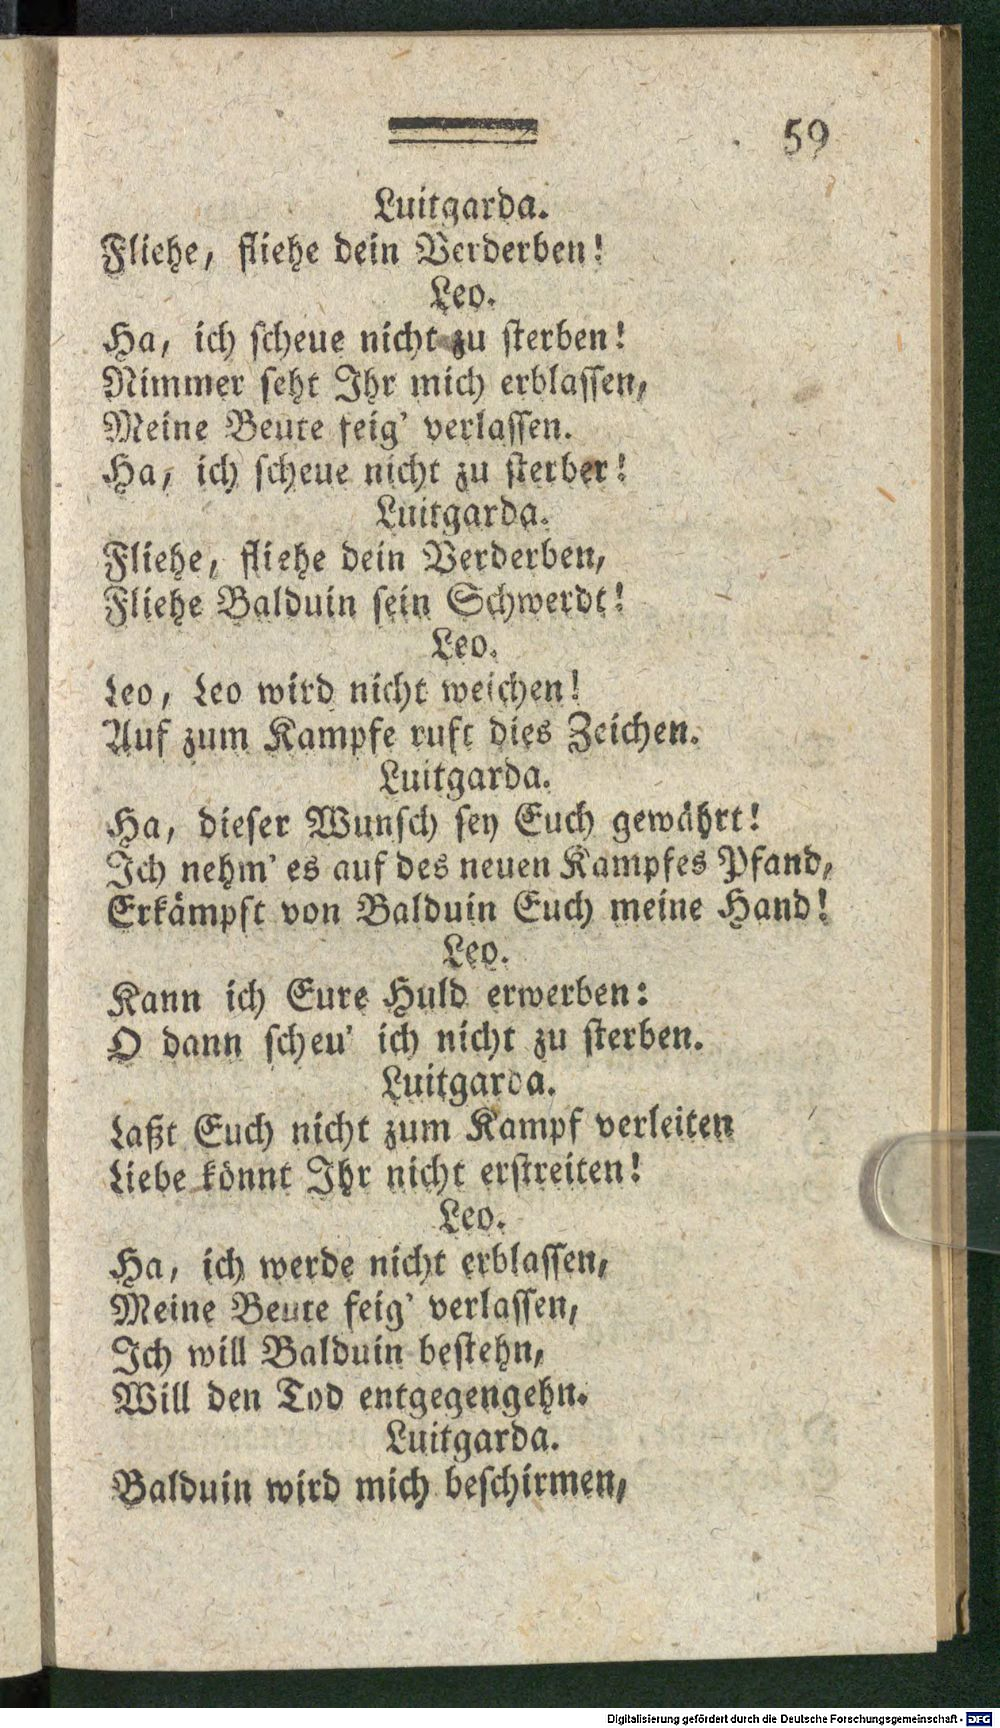 59
Luitgarda.
Fliehe, fliehe dein Verderben!
Leo.
Ha, ich scheue nicht zu sterben!
Nimmer seht Ihr mich erblassen,
Meine Beute feig' verlassen.
Ha, ich scheue nicht zu sterber!
Luitgarda.
Fliehe, fliehe dein Verderben,
Fliehe Balduin sein Schwerdt!
Leo.
Leo, Leo wird nicht weichen!
Auf zum Kampfe ruft dies Zeichen.
Luitgarda.
Ha, dieser Wunsch sey Euch gewährt!
Ich nehm' es auf des neuen Kampfes Pfand,
Erkämpft von Balduin Euch meine Hand!
Leo.
Kann ich Eure Huld erwerben:
O dann scheu' ich nicht zu sterben.
Luitgarda.
Laßt Euch nicht zum Kampf verleiten
Liebe könnt Ihr nicht erstreiten!
Leo.
Ha, ich werde nicht erblassen,
Meine Beute feig' verlassen,
Ich will Balduin bestehn,
Will den Tod entgegengehn.
Luitgarda.
Balduin wird mich beschirmen,
Digitalisierung gefördert durch die Deutsche Forschungsgemeinschaft - DFG